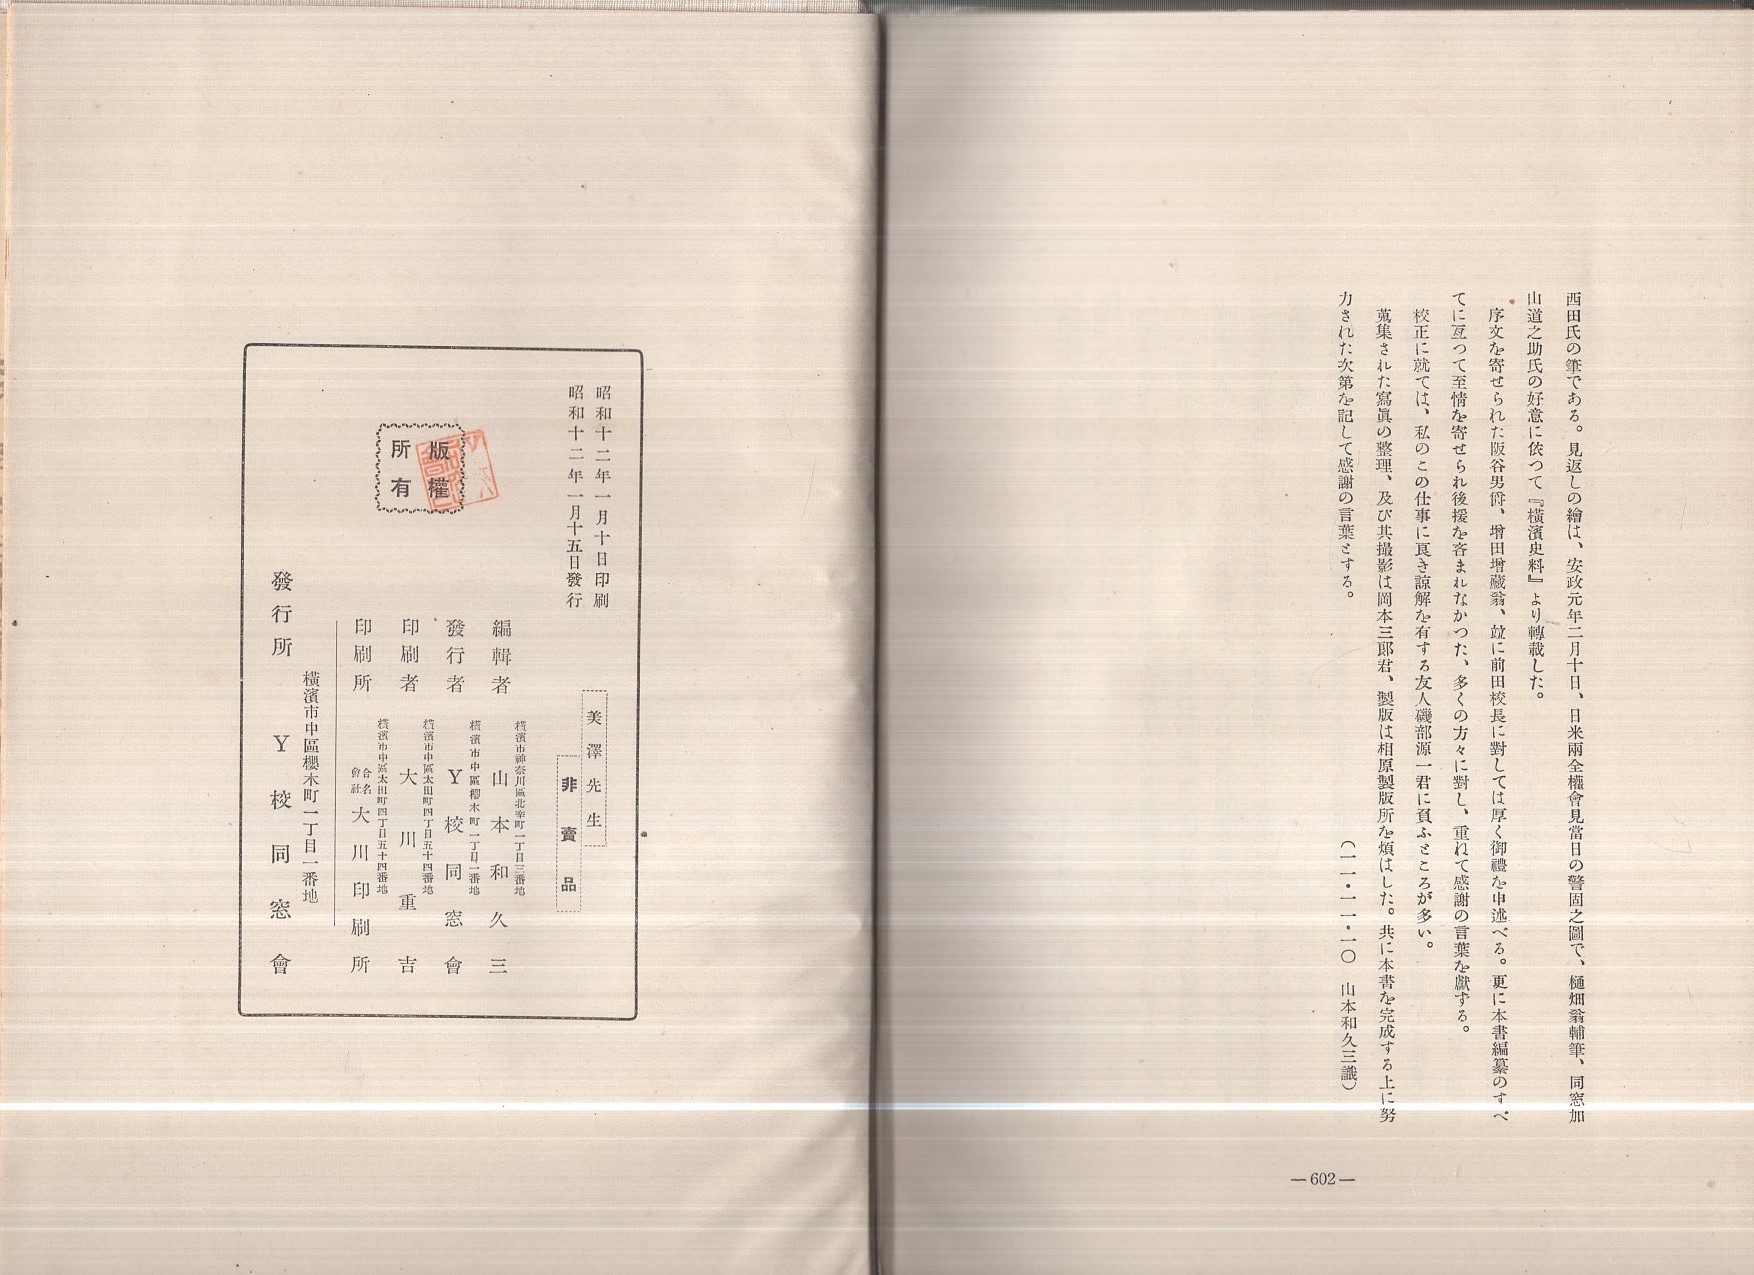 西田氏の筆である。見返しの繪は、安政元年二月十日、日米兩全權會見當日の警固之圖で、樋畑翁輔筆、同窓加
山道之助氏の好意に依つて『橫濱史料』より轉載した。
序文を寄せられた阪谷男爵、增田增藏翁、竝に前田校長に對しては厚く御禮を申述べる。更に本書編纂のすべ
てに亙つて至情を寄せられ後援を吝まれなかつた、多くの方々に對し、重ねて感謝の言葉を獻する。
校正に就ては、私のこの仕事に良き諒解を有する友人磯部源一君に負ふところが多い。
蒐集された寫眞の整理、及び其撮影は岡本三郞君、製版は相原製版所を煩はした。共に本書を完成する上に努
力された次第を記して感謝の言葉とする。
(一一・一一・一〇 山本和久三識)
—602—
昭和十二年一月十日印刷
昭和十二年一月十五日發行
美澤先生
非賣品
版權
所有
橫濱市神奈川區北幸町一丁目三番地
編輯者 山本和久三
橫濱市中區櫻木町一丁目一番地
發行者 Y校同窓會
橫濱市中區太田町四丁目五十四番地
印刷者 大川重吉
橫濱市中區太田町四丁目五十四番地
印刷所 合名會社大川印刷所
橫濱市中區櫻木町一丁目一番地
發行所 Y校同窓會